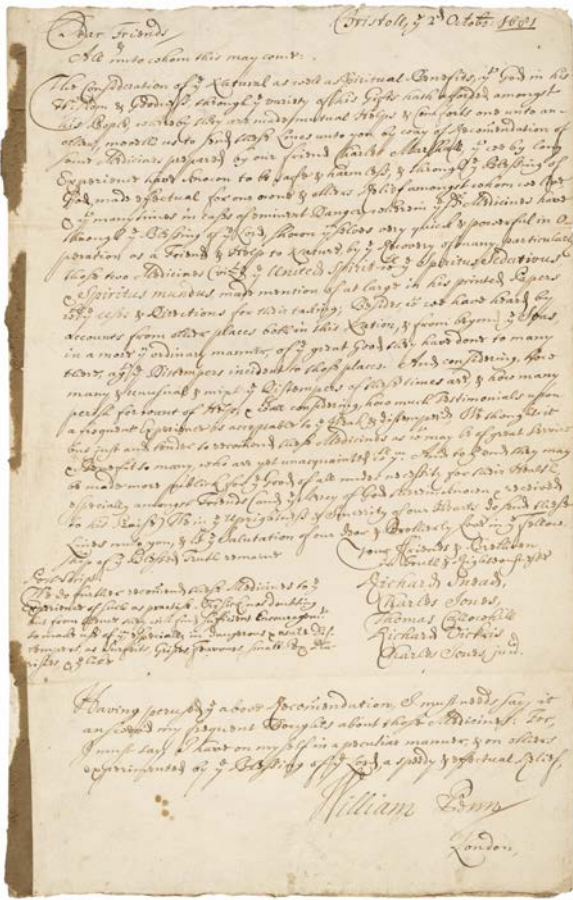 Bristoll, yͤ 2ᵈ Octobͬ: 1681
Dear Friends,
All unto whom this may come.
The Consideration of yͤ Natural as well as Spiritual Benefits, yͭ God in his
Wisdom & Goodness through yͤ variety of his Gifts hath afforded amongst
his People, whereby they are made mutual Helps & Comforts one unto an=
other, moveth us to send these Lines unto you by way of Recomendation of
some Medicines prepared by our friend Charles Marshall, wͨ we by long
Experience have known to be safe & harmless, & through yͤ Blessing of
God, made effectual for our owne & others Relief amongst whom we live
& yͭ many times in cases of eminent Danger, wherein yͤ sͩ Medicines have
through yͤ Blessing of yͤ Lord, shown yͫselves very quick & powerful in O=
peration as a Friend & Help to Nature, by yͤ Recovery of many, particularly
those two Medicines (vizͭ) yͤ United Spirit or yͤ Spiritus Sedativus
& Spiritus mundus, made mention of at large in his printed Papers
wͭͪ yͤ Uses & Directions for their taking; Besides, wͨ we have heard by
accounts from other places both in this Nation, & from beyond yͤ Seas,
in a more yͫ ordinary manner, of yͤ great Good they have done to many
there, agͭ yͤ Distempers incident to those places. And considering, how
many & unusual & mixt yͤ Distempers of these times are, & how many
perish for want of Help, & considering, how much Testimonials upon
a frequent Experience is acceptable to yͤ Weak & distempered We thought it
but just and tender to recomend these Medicines as wͨ may be of great Service
& Benefit to many, who are yet unacquainted wͭͪ yͫ. And to yͤ end they may
be made more publick for yͤ Good of all under necessity for their Health
especially amongst Friends (and yͤ Mercy of God therein known & received
to his Praise) We in yͤ Uprightness & Sincerity of our Hearts do send these
Lines unto you, & wͭͪ yͤ Salutation of our dear & Brotherly Love in yͤ Fellow=
ship of yͤ Blessed Truth remaine
Your Friends & Brethren
in Truth & Righteousness
Richard Snead,
Charles Jones,
Thomas Callowhill
Richard Vickris
Charles Jones, junͬ.
Post Script
We do further recomend these Medicines to yͤ
Experience of such as practise Physick, not doubting
but from thence they will find sufficient Encouragemͭ
to make use of yͫ especially in Dangerous & acute Dis=
tempers, as Surfeits, Feavours, Small Pox, Plu=
risies, & yͤ like
Having perused yͤ above Recomendation, I must needs say, it
answered my frequent Thoughts about those Medicines: For,
I must say, I have on my self in a peculiar manner, & on others
experimented by yͤ Blessing of yͤ Lord, a speedy & effectual Relief,
William Penn
London,